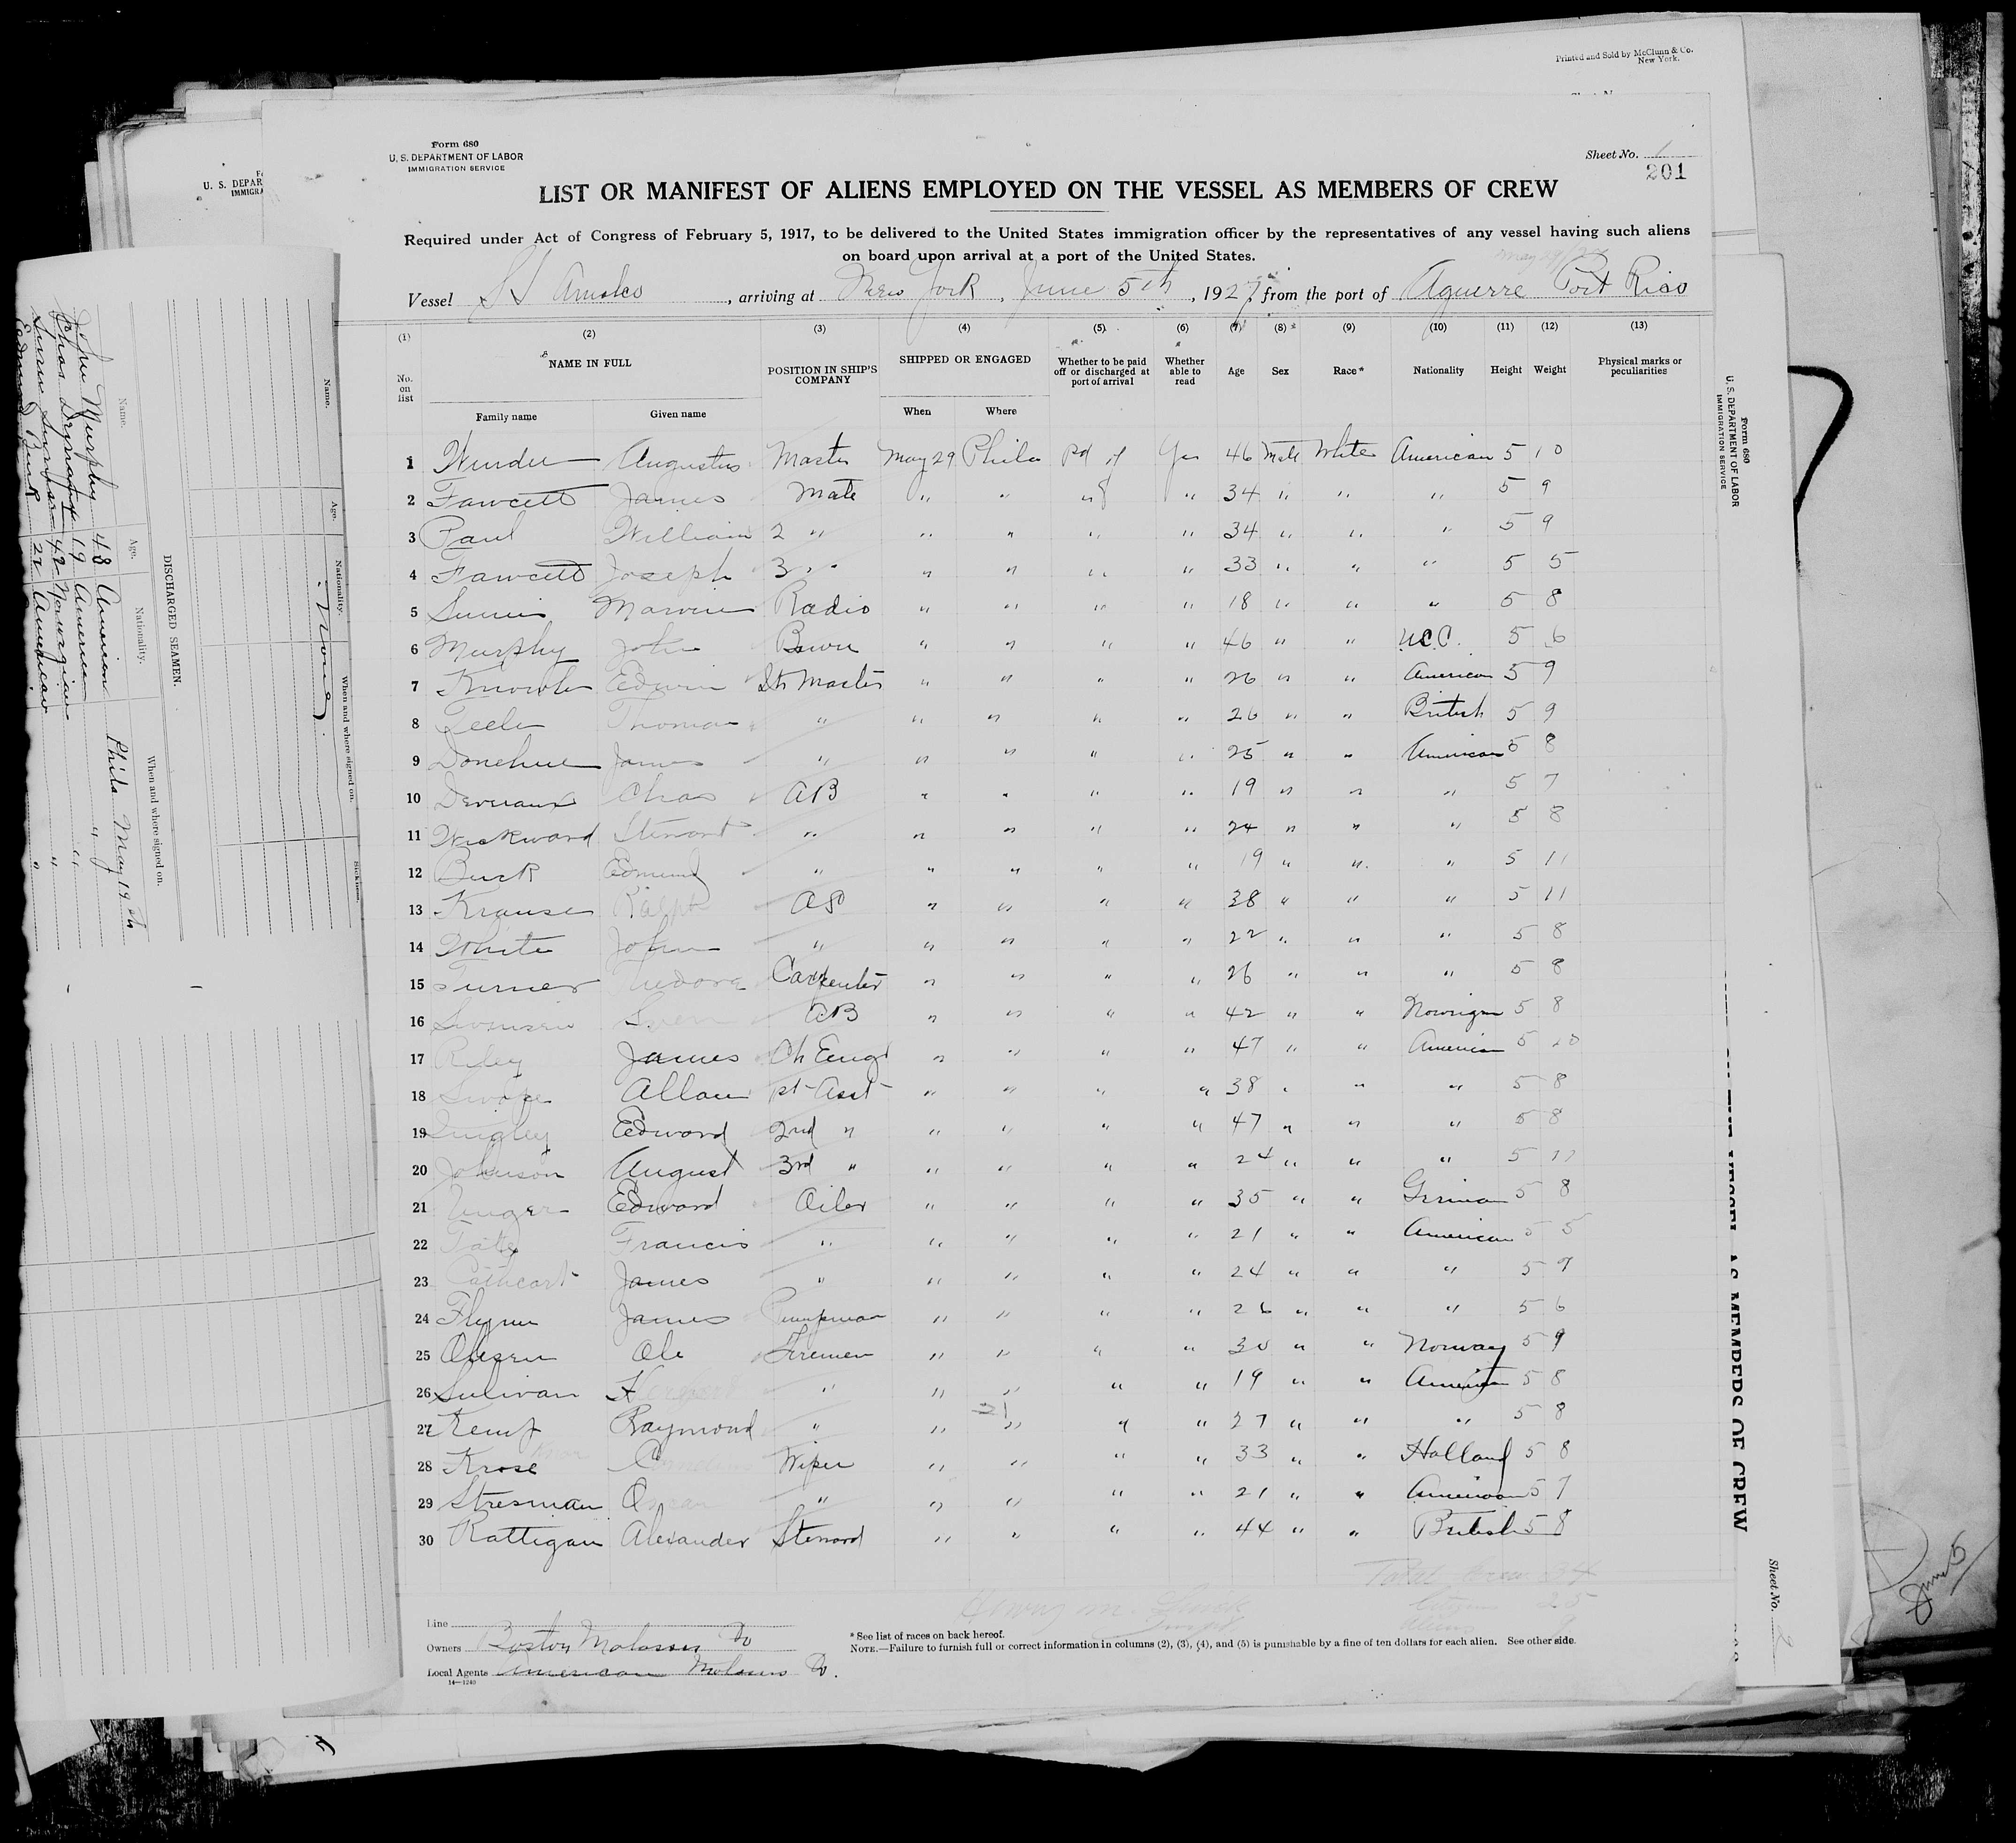 Printed and Sold by McClunn & Co.
New York.
Form 680
U. S. DEPARTMENT OF LABOR
IMMIGRATION SERVICE
Sheet No. 1
201
LIST OR MANIFEST OF ALIENS EMPLOYED ON THE VESSEL AS MEMBERS OF CREW
Required under Act of Congress of February 5, 1917, to be delivered to the United States immigration officer by the representatives of any vessel having such aliens
on board upon arrival at a port of the United States.
Vessel SS, arriving at New York, June 5th, 1927, from the port of Aguerre Port Rico
(1) (2) (3) (4) (5) (6) (7) (8) (9) (10) (11) (12) (13)
No. on list NAME IN FULL POSITION IN SHIP'S COMPANY SHIPPED OR ENGAGED Whether to be paid off or discharged at port of arrival Whether able to read Age Sex Race* Nationality Height Weight Physical marks or peculiarities
Family name Given name When Where
1 Augustus Master May 29 Phila Pd Yes 46 Male White American 5 10
2 Fawcett James Mate " " " " 34 " " " 5 9
3 Paul William 2 " " " " " 34 " " " 5 9
4 Fawcett Joseph 3 " " " " " 33 " " " 5 5
5 Radio " " " " 18 " " " 5 8
6 Murphy John " " " " 46 " " 5 6
7 Edwin " " " " 26 " " American 5 9
8 Thomas " " " " " 26 " " British 5 9
9 Donehue James " " " " " 25 " " American 5 8
10 Chas AB " " " " 19 " " " 5 7
11 Wickward " " " " " 24 " " " 5 8
12 Buck Edmund " " " " " 19 " " " 5 11
13 Krause Ralph " " " " 38 " " " 5 11
14 White John " " " " " 22 " " " 5 8
15 Turner Carpenter " " " " 26 " " " 5 8
16 AB " " " " 42 " " 5 8
17 Riley James Ch Engr " " " " 47 " " American 5 10
18 Swope Allan 1st Asst " " " " 38 " " " 5 8
19 Quigley Edward 2nd " " " " " 47 " " " 5 8
20 Johnson August 3rd " " " " " 24 " " " 5 11
21 Unger Edward Oiler " " " " 35 " " German 5 8
22 Tate Francis " " " " " 21 " " American 5 5
23 Cathcart James " " " " " 24 " " " 5 9
24 Flynn James Pumpman " " " " 26 " " " 5 6
25 Olesen Ole Firemen " " " " 30 " " Norway 5 9
26 Sulivan " " " " " 19 " " American 5 8
27 Kemp Raymond " " " " " 27 " " " 5 8
28 Krose Wiper " " " " 33 " " Holland 5 8
29 Stresman Oscar " " " " " 21 " " American 5 7
30 Rattigan Alexander Steward " " " " 44 " " British 5 8
Total Crew 34
25
Aliens 9
Line
Owners Boston Molasses Co
Local Agents American Molasses Co.
14—1240
* See list of races on back hereof.
NOTE.—Failure to furnish full or correct information in columns (2), (3), (4), and (5) is punishable by a fine of ten dollars for each alien. See other side.
DISCHARGED SEAMEN.
Name. Age. Nationality. When and where signed on.
John Murphy 48 American Phila May 19th
Chas 19 American " "
42 Norwegian "
Edmund Buck 22 American "
Name. Age. Nationality. When and where signed on. Sickness.
None
Form 680
U. S. DEPARTMENT OF LABOR
IMMIGRATION SERVICE
AS MEMBERS OF CREW
Sheet No. 2
June 5